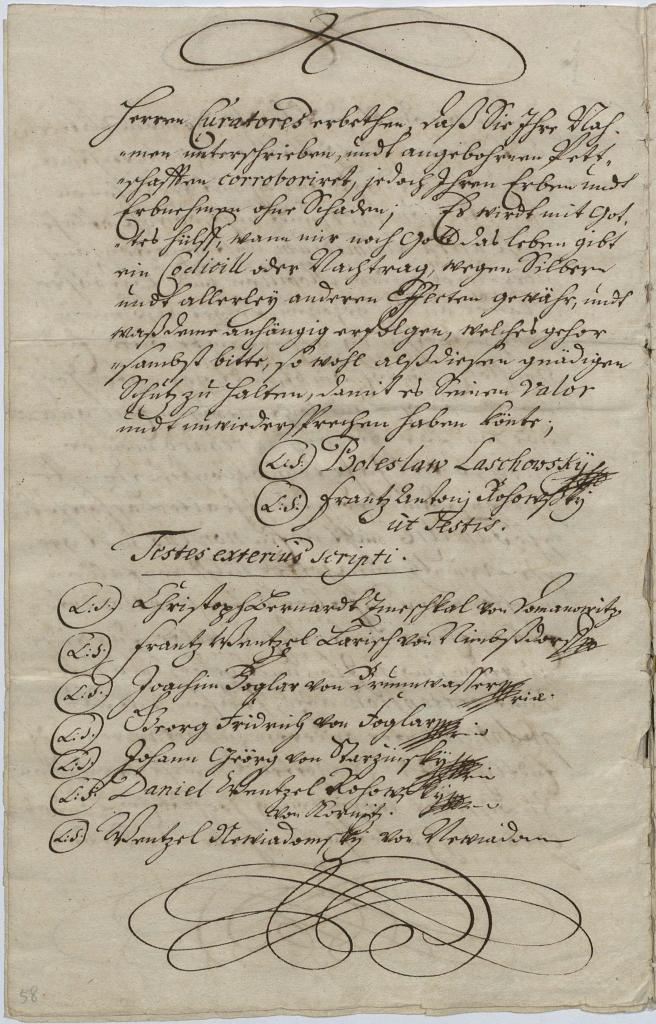 Herren Curatores erbethen, daß Sie Ihre Nah-
-men unterschrieben, undt angebohrenen Pett-
-schafften corroboriret, jedoch Ihren Erben undt
Erbnehmen ohne Schaden; Es wirdt mit Got-
-tes hülff, wann mir noch Gott das leben gibt
ein Codicill oder Nachtrag, wegen Silbern
undt allerley anderen Effecten gewähr, undt
waß deme anhängig erfolgen, welches gehor
-sambst bitte, so wohl alß diesen gnädigen
Schutz zu halten, damit es Seinen Valor
undt unwiedersprechen haben könte;
(L:S:) Boleslaw Laschowsky
(L:S:) Frantz Antonj Rohowsky
ut Testis.
Testes exterius scripti.
(L:S:) Christoph Bernardt Jmeschkal von Domanowitz
(L:S:) Frantz Wentzel Larisch von Nimbßdorf
(L:S:) Joachim Foglar von Brunnwasser
(L:S:) Georg Fridrich von Foglar
(L:S:) Johann Geörg von Starzinsky
(L:S: Daniel Wentzel Rohowsky
von Kornitz.
(L:S:) Wentzel Newiadomsky von Newiadom
58.